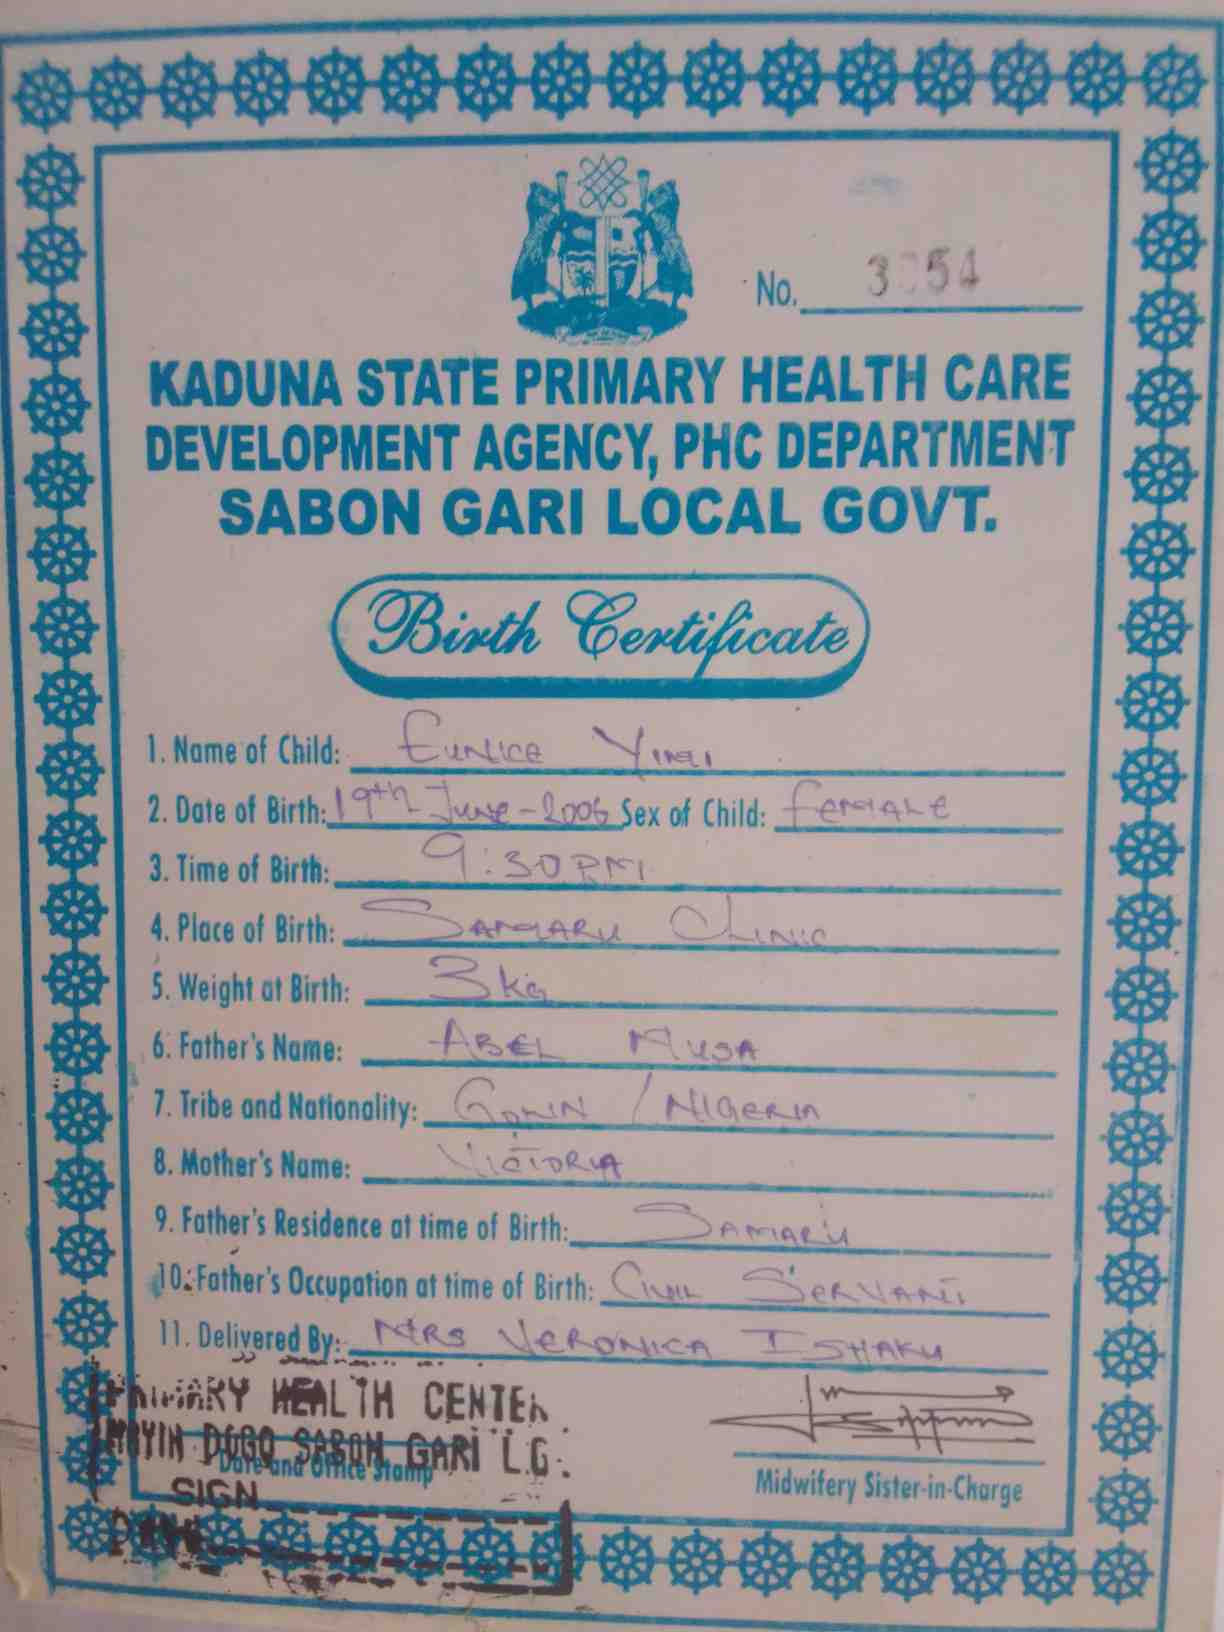 No. 3054
KADUNA STATE PRIMARY HEALTH CARE
DEVELOPMENT AGENCY, PHC DEPARTMENT
SABON GARI LOCAL GOVT.
Birth Certificate
1. Name of Child: Eunice
2. Date of Birth: 19th June-2006 Sex of Child: Female
3. Time of Birth: 9:30PM
4. Place of Birth: Samaru Clinic
5. Weight at Birth: 3kg
6. Father's Name: Abel Musa
7. Tribe and Nationality: / Nigeria
8. Mother's Name: Victoria
9. Father's Residence at time of Birth: Samaru
10. Father's Occupation at time of Birth: Civil Servant
11. Delivered By: Mrs Veronica Ishaku
PRIMARY HEALTH CENTER
DOGO SABON GARI L.G.
Date and Office Stamp
SIGN
Midwifery Sister-in-Charge